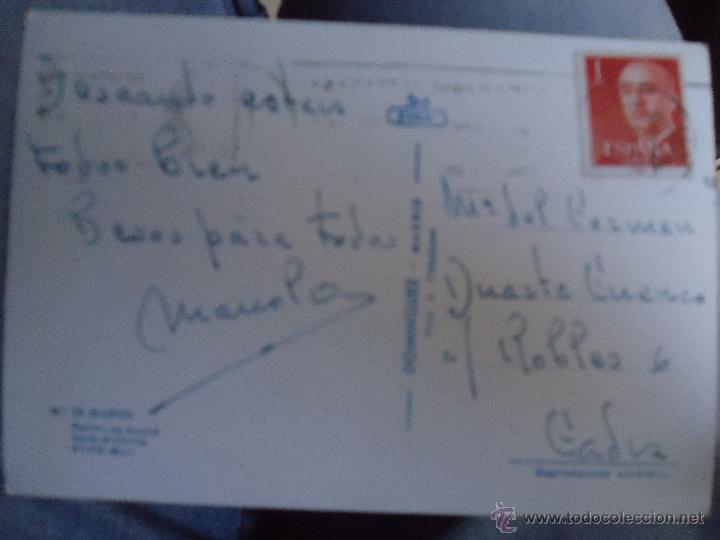 Deseando esten
todos bien
Besos para todos
Manola
1
ESPAÑA
DOMINGUEZ - MADRID
Mª del Carmen
Duarte Cuenca
c/ Robles 6
Cadiz
www.todocoleccion.net